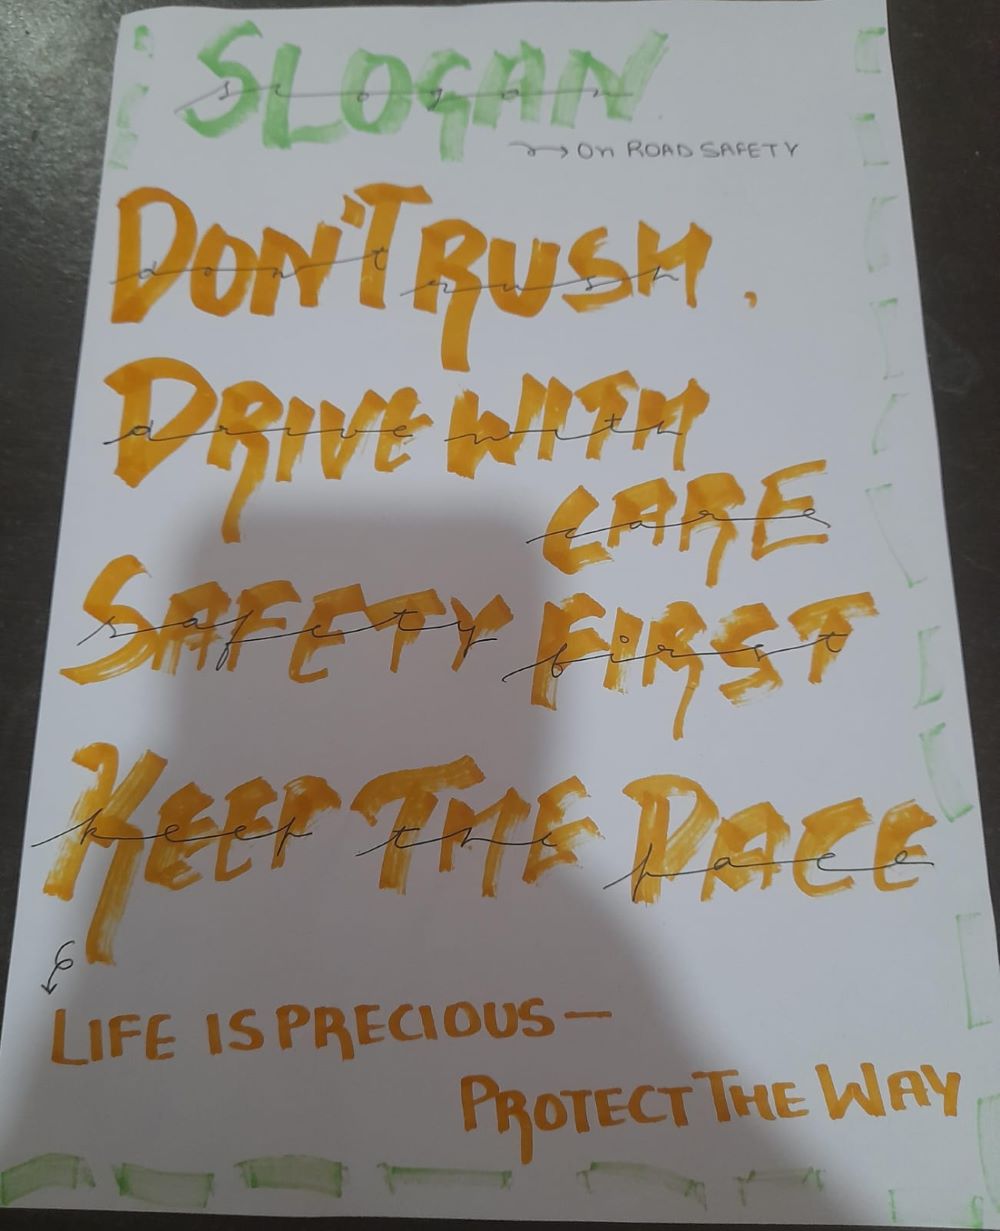 SLOGAN
slogan
→ On ROAD SAFETY
DON'T RUSH,
dont rush
DRIVE WITH
drive with
CARE
care
SAFETY FIRST
safety first
KEEP THE PACE
keep the pace
LIFE IS PRECIOUS—
PROTECT THE WAY